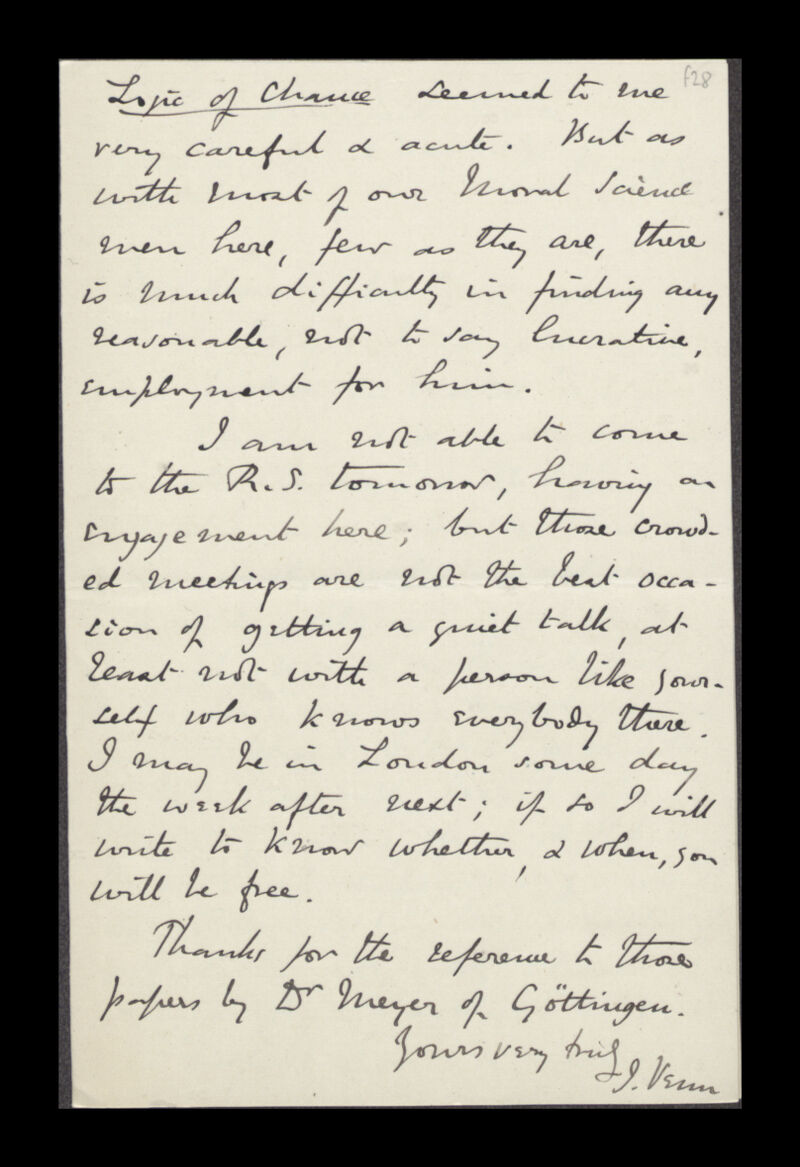 f28
Logic of Chance seemed to me
very careful & acute. But as
with most of our Moral Science
men here, few as they are, there
is much difficulty in finding any
reasonable, not to say lucrative,
employment for him.
I am not able to come
to the R.S. tomorrow, having an
engagement here; but those crowd-
ed meetings are not the best occa-
sion of getting a quiet talk, at
least not with a person like your-
self who knows everybody there.
I may be in London some day
the week after next; if so I will
write to know whether, & when, you
will be free.
Thanks for the reference to those
papers by Dr Meyer of Göttingen.
Yours very truly
J. Venn